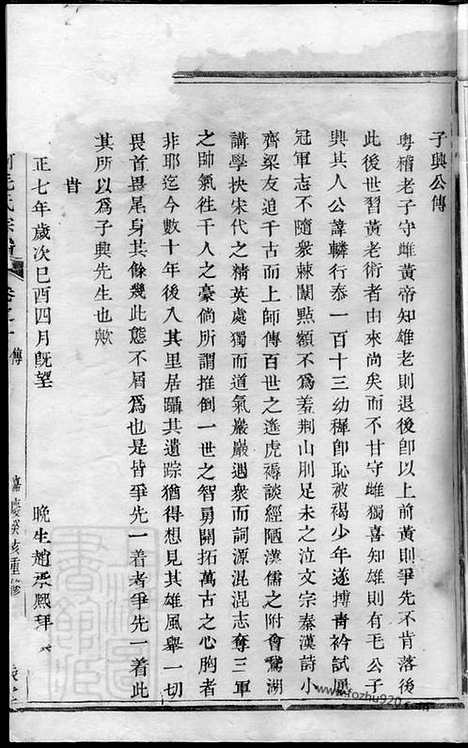 子興公傳
粤稽老子守雌黃帝知雄老則退後卽以上前黃則爭先不肯落後
此後世習黃老術者由來尚矣而不甘守雌獨喜知雄則有毛公子
興其人公諱轔行泰一百十三幼穉卽恥被褐少年遂搏青衿試凰
冠軍志不隨衆棘闈點額不爲羞荆山刖足未之泣文宗秦漢詩小
齊梁友迫千古而上師傳百世之遙虎禱談經陋漢儒之附會鵞湖
講學抉宋代之精英處獨而道氣巖巖遇衆而詞源混混志奪三軍
之帥氣徃千人之豪倘所謂推倒一世之智勇開拓萬古之心胸者
非耶迄今數十年後入其里居躡其遺踪猶得想見其雄風舉一切
畏首畏尾身其餘幾此態不屑爲也是皆爭先一着者爭先一着此
其所以爲子興先生也歟
旹
正七年歲次己酉四月旣望 晚生趙承熙拜
毛氏宗譜 卷之 傳 嘉慶癸亥重修
www.fozhu920.com